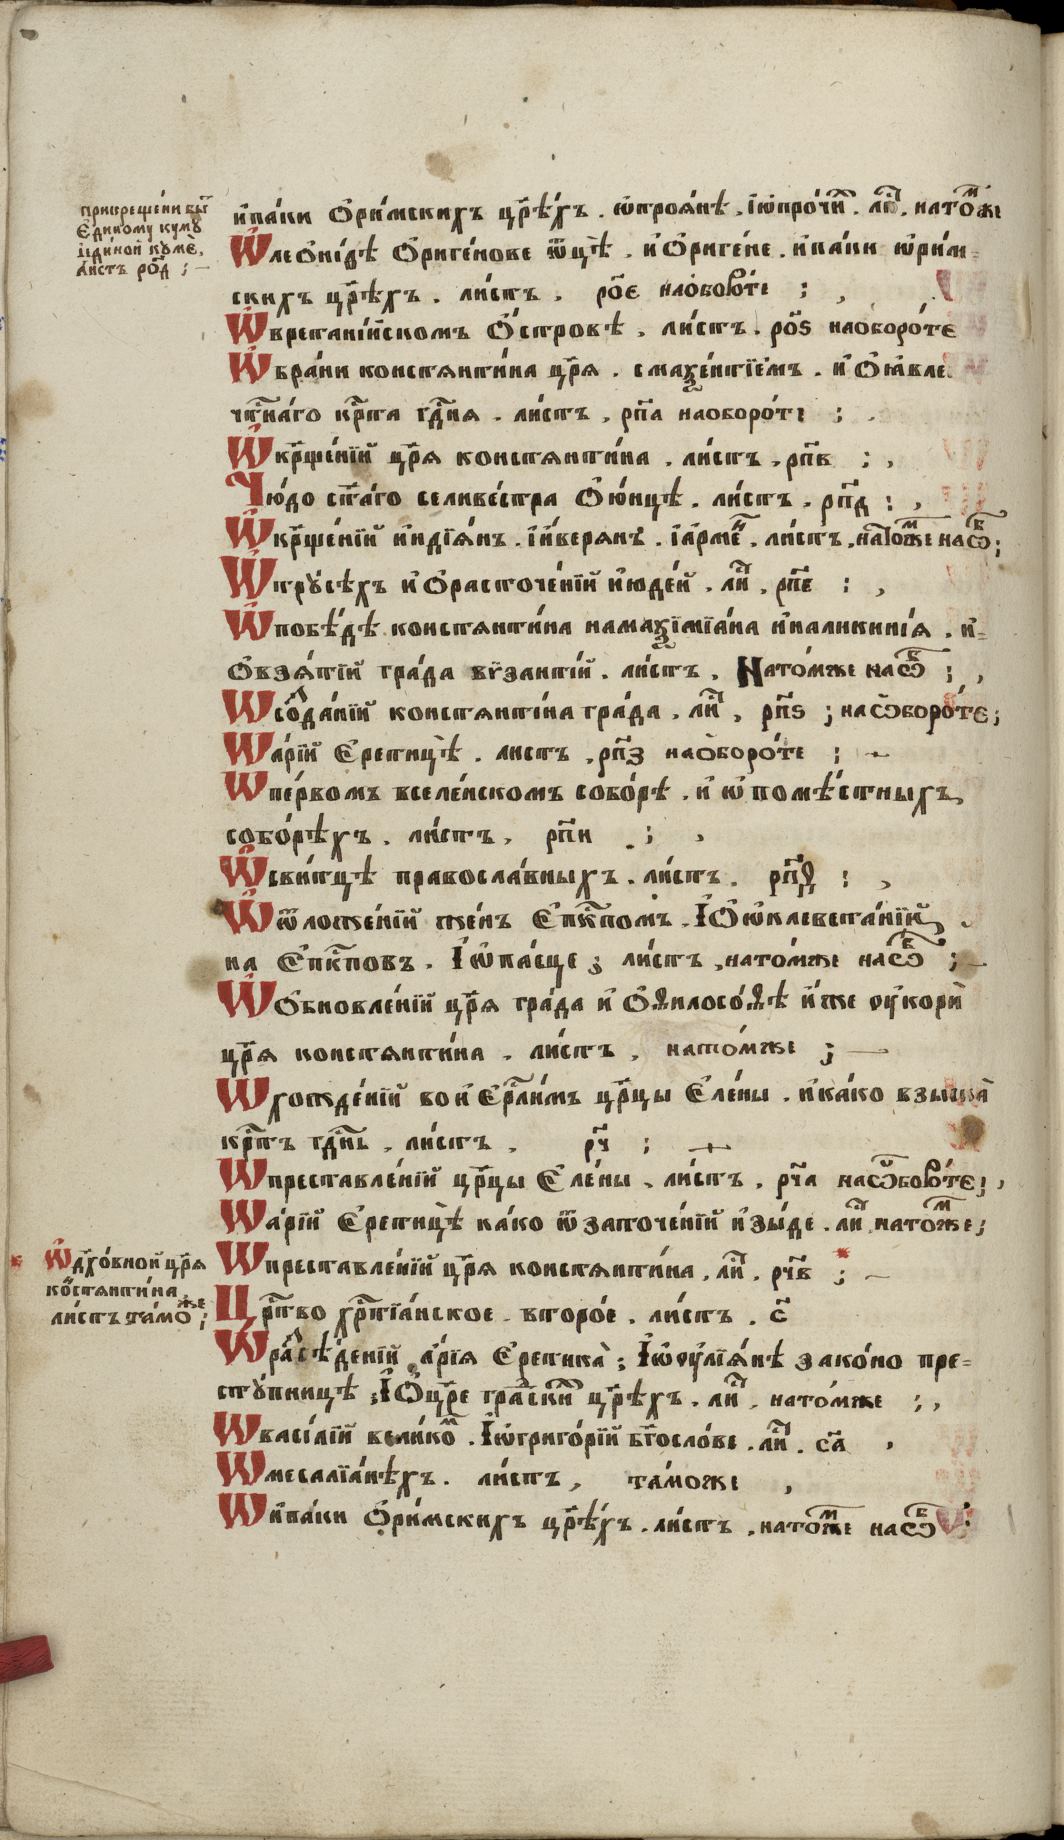 прикрещени бы
единому куму
иедино́й кумѐ,
листъ ро҃д ; –
и҆па́ки Ѻ҆ри́мскихъ цр҃ѣхъ . ѡ҆троя́нѣ . і҆ѡ҆про́чи . ли . натомже
Ѡ҆леѻни́дѣ Ѻ҆риге́нове ѿцѣ . и҆Ѻ҆риге́не . и҆па́ки ѡ҆ри́м=
скихъ цр҃ѣхъ . ли́стъ . ро҃е наѻборо́те ; ,
Ѡ҆врета́нійскомъ Ѻ҆́стровѣ . ли́стъ . ро҃ѕ наѻборо́те
Ѡ҆бра́ни констянти́на цр҃я . смаѯе́нтїемъ . и҆Ѻ҆ꙗ҆вле
чт҃на́го кр҃та гд҃ня . ли́стъ . рп҃а наѻборо́те ; .
Ѡ҆кр҃ще́нїй цр҃я констянти́на . ли́стъ . рп҃в ; ,
Чю́до ст҃а́го селиве́стра Ѻ҆ю́нцѣ . ли́стъ . рп҃д : ,
Ѡ҆кр҃ще́нїй и҆ндїя́нъ . і҆и҆верянъ . і҆а҆рме́н . ли́стъ . натомже насѡв ;
Ѡ҆тру́сѣхъ и҆Ѻ҆расточе́нїй и҆юде́й . ли . рп҃е : ,
Ѡ҆побѣ́дѣ констянти́на намаѯїмїа́на и҆налики́нїя . и҆=
Ѻ҆взя́тїй гра́да вїзанті́й . ли́стъ . Натомже насѡв ; ,
Ѡ҆созда́нїй констянті́на гра́да . ли . рп҃ѕ ; насѡборо́те ;
Ѡ҆а́рїй Є҆ретицѣ̀ . листъ . рп҃з наѻборо́те ; –
Ѡ҆пе́рвомъ вселе́нскомъ собо́рѣ . и҆ ѡ҆помѣ́стныхъ
собо́рѣхъ . ли́стъ . рп҃и ; ,
Ѡ҆сви́тцѣ правосла́вныхъ . ли́стъ . рп҃ѳ : ,
Ѡ҆ѿложе́нїй же́нъ Є҆пи҃спомъ . І҆Ѻ҆ѡ҆клевета́нїй
на Є҆пк҃повъ . І҆ѡ҆па́сце ; ли́стъ . натомже насѡв ; –
Ѡ҆Ѻ҆бновле́нїй цр҃я гра́да и҆ Ѻ҆ѳилосо́ѳѣ и҆́же ᲂу҆кори̇
цр҃я констянти́на . ли́стъ . натомже ; –
Ѡ҆хожде́нїй во и҆ Є҆рл҃и́мъ цр҃цы Є҆ле́ны . и҆ка́ко взыска
кр҃тъ гд҃нь . ли́стъ . рч҃ ; –
Ѡ҆преставле́нїй цр҃цы Є҆ле́ны . ли́стъ . рч҃а насѡборо́те ; ,
Ѡ҆а́рїй Є҆ретицѣ̀ ка́ко ѿзаточе́нїй и҆зы́де . ли натомже ;
Ѡ҆дх҃о́вной цр҃я
костянти́на .
ли́стъ таможе ;
Ѡ҆преставле́нїй цр҃я констянти́на . ли . рч҃в ; –
Цр҃тво хр҃тїа́нское второ́е . ли́стъ . с҃
Ѡ҆разсѣ́денїй а҆́рїя Є҆рети́ка ; І҆ѡᲂу҆лїя́нѣ зако́но пре=
сту́пницѣ ; І҆Ѻ҆цр҃е гра́ски цр҃ѣхъ . ли . натомже ; ,
Ѡ҆васі́лїй вели́ком . І҆ѡ҆григо́рїй бг҃осло́ве . ли . са҃ ,
Ѡ҆месалїа́нѣхъ . ли́стъ , та́може ,
Ѡ҆и҆па́ки Ѻ҆ри́мскихъ цр҃ѣхъ . ли́стъ . натомже насѡв ;